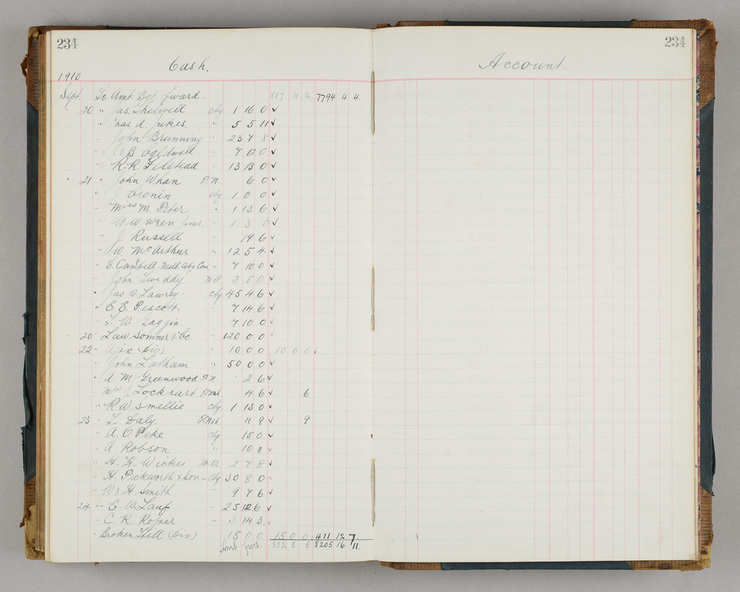 234
234
Cash.
Account
1910
Sept. To Amt Bot forward. 7794 4 4
20 " Jas. Thelwell chq 1 16 0
" Chas A Jukes " 5 5 11
John Brunning " 23 7 8
" 7 10 0
R. R. Felstead " 13 13 0
21 " John Whan P.N. 6 0
Cronin chq 1 0 0
" Mrs M Peter " 1 13 6
W W Wren " 1 3 0
" J Russell 14 6
" W McArthur " 12 5 4
" G Campbell 7 10 0
John Twiddy M.O. 3 5 0
" Jas C Lawrey Chq 45 4 6
" C. E. Piscott " 7 14 6
" 7 10 0
20 " Law Somner & Co " 120 0 0
22 " Ajax (Div) 10 0 0 10 0 0
John Latham " 50 0 0
" A M Greenwood P.N. 2 6
" Mrs Lockhart 4 6 6
" R W Smellie Chq 1 13 0
23 " L. Daly. 11 9 9
" A. C Pike chq 15 0
" A Robson " 10 0
" H. H. Wickes M.O. 2 7 8
" H. Pickworth & Son Chq 30 8 0
" W H Smith " 9 7 6
24 " E W Lauf " 25 12 6
" C. R. Roper " 3 14 3
Broken Hill (Div) 15 0 0 15 0 0 411 12 7
8205 16 11